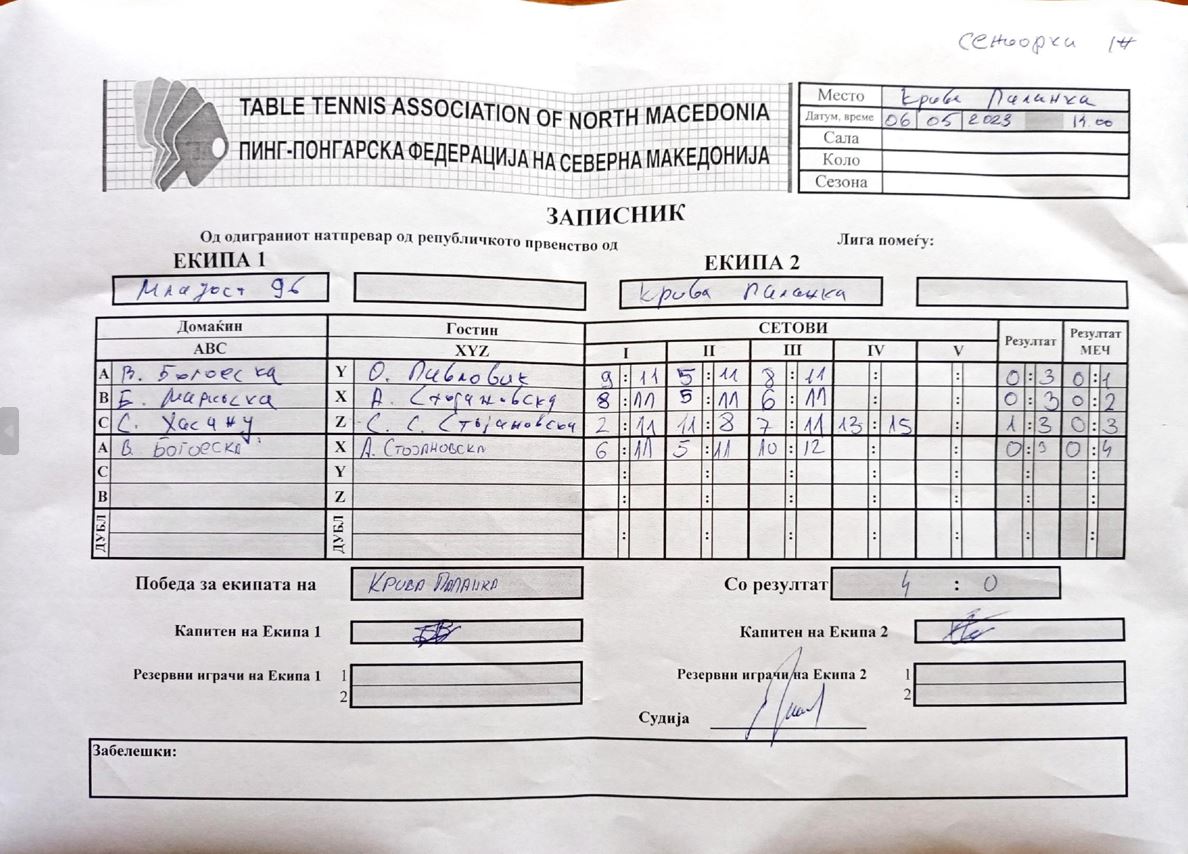 сениорки 1#
TABLE TENNIS ASSOCIATION OF NORTH MACEDONIA
ПИНГ-ПОНГАРСКА ФЕДЕРАЦИЈА НА СЕВЕРНА МАКЕДОНИЈА
Место Крива Паланка
Датум, време 06 05 2023 14.00
Сала
Коло
Сезона
ЗАПИСНИК
Од одиграниот натпревар од републичкото првенство од Лига помеѓу:
ЕКИПА 1 ЕКИПА 2
Младост 96 Крива Паланка
Домаќин Гостин СЕТОВИ Резултат Резултат МЕЧ
ABC XYZ I II III IV V
A В. Богоеска Y О. Павловиќ 9 : 11 5 : 11 8 : 11 : : 0 : 3 0 : 1
B Е. X А. Стојановска 8 : 11 5 : 11 6 : 11 : : 0 : 3 0 : 2
C С. Хасану Z С. С. Стојановска 2 : 11 11 : 8 7 : 11 13 : 15 : 1 : 3 0 : 3
A В. Богоеска X А. Стојановска 6 : 11 5 : 11 10 : 12 : : 0 : 3 0 : 4
C Y : : : : : : :
B Z : : : : : : :
ДУБЛ ДУБЛ : : : : : : :
Победа за екипата на Крива Паланка Со резултат 4 : 0
Капитен на Екипа 1 Капитен на Екипа 2
Резервни играчи на Екипа 1 1 Резервни играчи на Екипа 2 1
2 2
Судија
Забелешки: